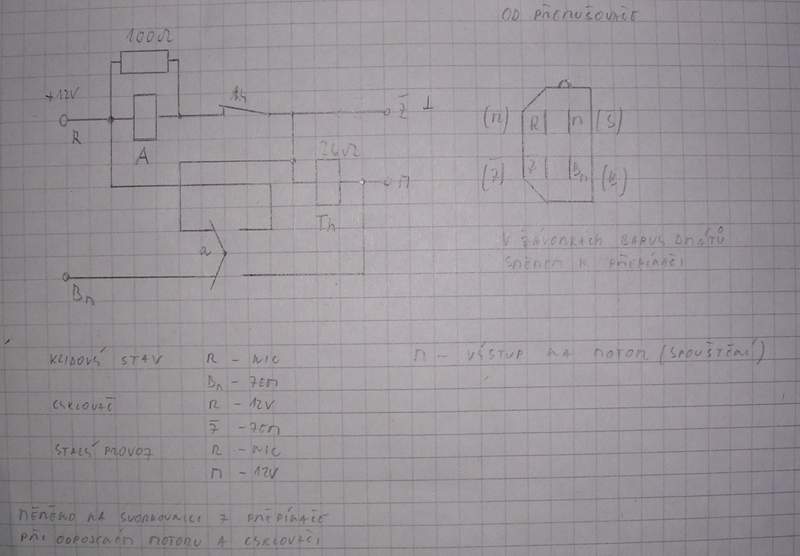 OD PŘERUŠOVAČE
100Ω
+12V
th
R
A
Ž ⊥
24Ω
M
Th
a
Bn
(R) R M (S)
(Ž) Ž Bn (B)
V ZÁVORKÁCH BARVY DRÁTŮ
SMĚREM K PŘEPÍNAČI
KLIDOVÝ STAV R - NIC
Bn - ZEM
CYKLOVAČ R - 12V
Ž - ZEM
STÁLÝ PROVOZ R - NIC
M - 12V
M - VÝSTUP NA MOTOR (SPOUŠTĚNÍ)
MĚŘENO NA SVORKOVNICI Z PŘEPÍNAČE
PŘI ODPOJENÉM MOTORU A CYKLOVAČI